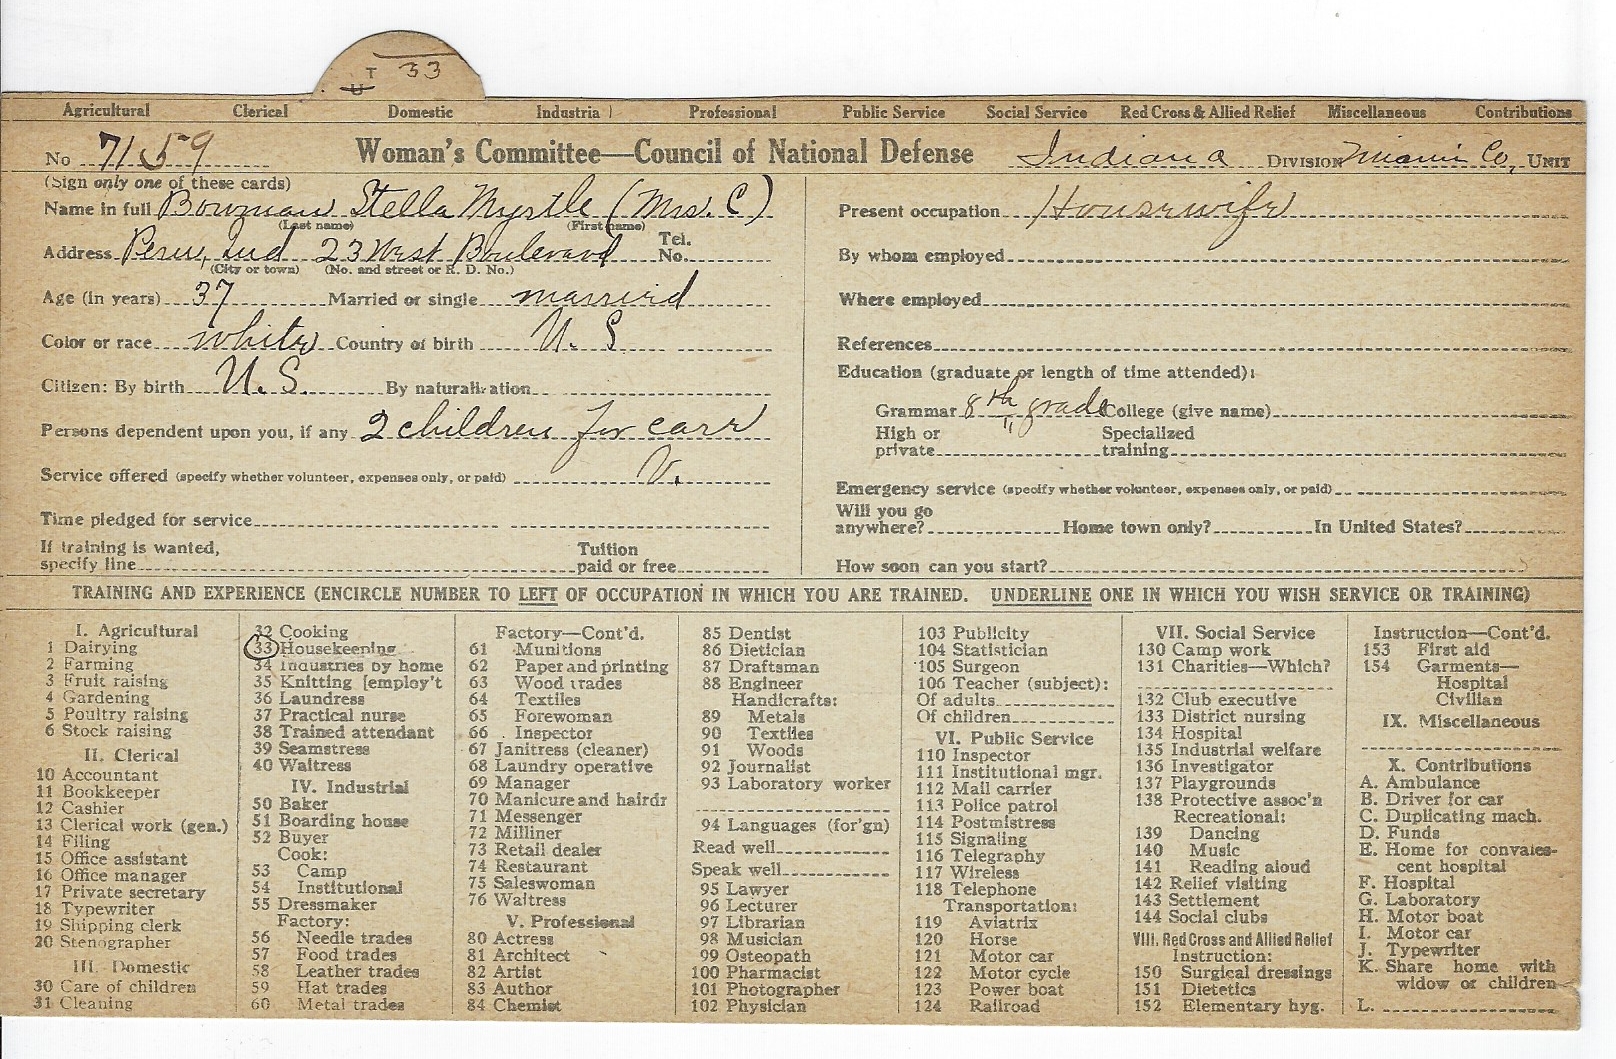 T 33
U
Agricultural Clerical Domestic Industrial Professional Public Service Social Service Red Cross & Allied Relief Miscellaneous Contributions
No 7159 Woman's Committee—Council of National Defense Indiana DIVISION Miami Co, UNIT
(Sign only one of these cards)
Name in full Bowman Stella Myrtle (Mrs. C)
(Last name) (First name)
Address Peru, Ind 23 West Boulevard Tel. No.
(City or town) (No. and street or R. D. No.)
Age (in years) 37 Married or single married
Color or race white Country of birth U. S.
Citizen: By birth U.S. By naturalization
Persons dependent upon you, if any 2 children for care
Service offered (specify whether volunteer, expenses only, or paid) V.
Time pledged for service
If training is wanted, Tuition
specify line paid or free
Present occupation Housewife
By whom employed
Where employed
References
Education (graduate or length of time attended):
Grammar 8th grade College (give name)
High or Specialized
private training
Emergency service (specify whether volunteer, expenses only, or paid)
Will you go
anywhere? Home town only? In United States?
How soon can you start?
TRAINING AND EXPERIENCE (ENCIRCLE NUMBER TO LEFT OF OCCUPATION IN WHICH YOU ARE TRAINED. UNDERLINE ONE IN WHICH YOU WISH SERVICE OR TRAINING)
I. Agricultural
1 Dairying
2 Farming
3 Fruit raising
4 Gardening
5 Poultry raising
6 Stock raising
II. Clerical
10 Accountant
11 Bookkeeper
12 Cashier
13 Clerical work (gen.)
14 Filing
15 Office assistant
16 Office manager
17 Private secretary
18 Typewriter
19 Shipping clerk
20 Stenographer
III. Domestic
30 Care of children
31 Cleaning
32 Cooking
33 Housekeeping
34 Industries by home
35 Knitting [employ't
36 Laundress
37 Practical nurse
38 Trained attendant
39 Seamstress
40 Waitress
IV. Industrial
50 Baker
51 Boarding house
52 Buyer
Cook:
53 Camp
54 Institutional
55 Dressmaker
Factory:
56 Needle trades
57 Food trades
58 Leather trades
59 Hat trades
60 Metal trades
Factory—Cont'd.
61 Munitions
62 Paper and printing
63 Wood trades
64 Textiles
65 Forewoman
66 Inspector
67 Janitress (cleaner)
68 Laundry operative
69 Manager
70 Manicure and hairdr
71 Messenger
72 Milliner
73 Retail dealer
74 Restaurant
75 Saleswoman
76 Waitress
V. Professional
80 Actress
81 Architect
82 Artist
83 Author
84 Chemist
85 Dentist
86 Dietician
87 Draftsman
88 Engineer
Handicrafts:
89 Metals
90 Textiles
91 Woods
92 Journalist
93 Laboratory worker
94 Languages (for'gn)
Read well
Speak well
95 Lawyer
96 Lecturer
97 Librarian
98 Musician
99 Osteopath
100 Pharmacist
101 Photographer
102 Physician
103 Publicity
104 Statistician
105 Surgeon
106 Teacher (subject):
Of adults
Of children
VI. Public Service
110 Inspector
111 Institutional mgr.
112 Mail carrier
113 Police patrol
114 Postmistress
115 Signaling
116 Telegraphy
117 Wireless
118 Telephone
Transportation:
119 Aviatrix
120 Horse
121 Motor car
122 Motor cycle
123 Power boat
124 Railroad
VII. Social Service
130 Camp work
131 Charities—Which?
132 Club executive
133 District nursing
134 Hospital
135 Industrial welfare
136 Investigator
137 Playgrounds
138 Protective assoc'n
Recreational:
139 Dancing
140 Music
141 Reading aloud
142 Relief visiting
143 Settlement
144 Social clubs
VIII. Red Cross and Allied Relief
Instruction:
150 Surgical dressings
151 Dietetics
152 Elementary hyg.
Instruction—Cont'd.
153 First aid
154 Garments—
Hospital
Civilian
IX. Miscellaneous
X. Contributions
A. Ambulance
B. Driver for car
C. Duplicating mach.
D. Funds
E. Home for convales-
cent hospital
F. Hospital
G. Laboratory
H. Motor boat
I. Motor car
J. Typewriter
K. Share home with
widow or children
L.